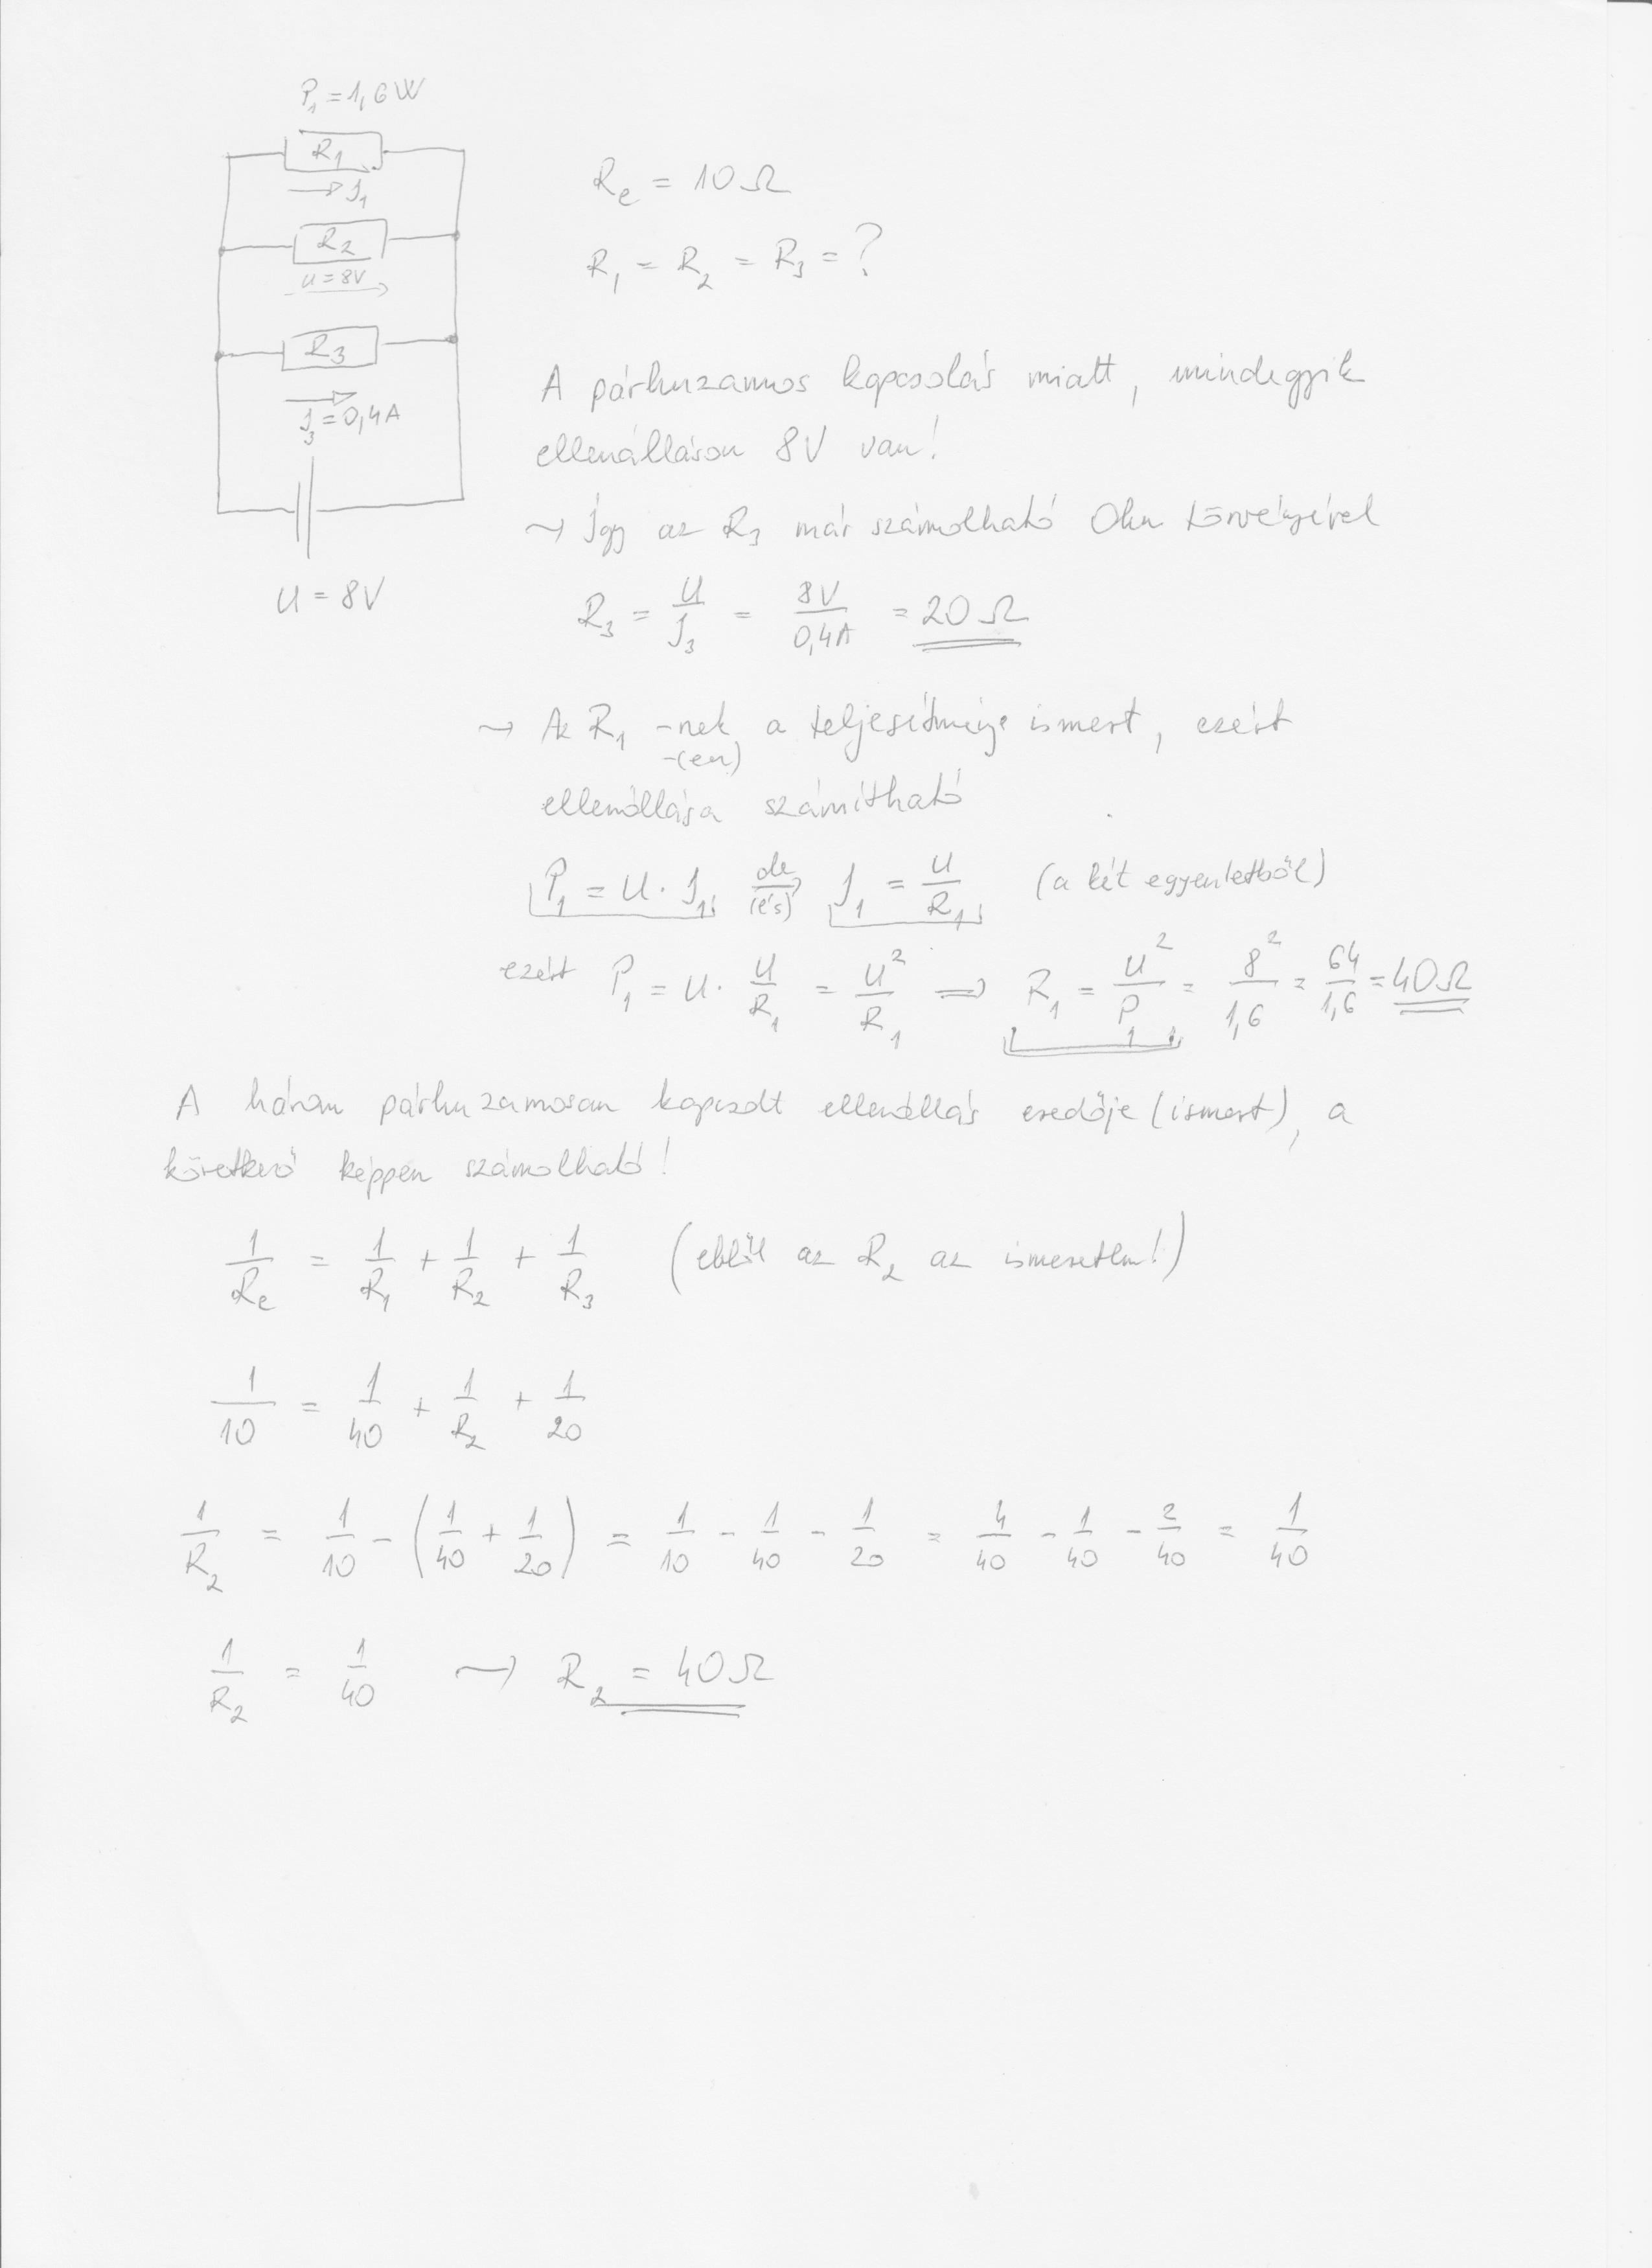 P₁ = 1,6 W
R₁
→ I₁
R₂
U = 8V
R₃
I₃ = 0,4 A
U = 8V
Re = 10 Ω
R₁ = R₂ = R₃ = ?
A párhuzamos kapcsolás miatt, mindegyik
ellenálláson 8V van!
→ Így az R₃ már számolható Ohm törvényével
R₃ = U/I₃ = 8V/0,4A = 20 Ω
→ Az R₁ -nek a teljesítménye ismert, ezért
-(en)
ellenállása számítható
P₁ = U · I₁ de (és) I₁ = U/R₁ (a két egyenletből)
ezért P₁ = U · U/R₁ = U²/R₁ ⇒ R₁ = U²/P₁ = 8²/1,6 = 64/1,6 = 40 Ω
A három párhuzamosan kapcsolt ellenállás eredője (ismert), a
következő képpen számolható!
1/Re = 1/R₁ + 1/R₂ + 1/R₃ (ebből az R₂ az ismeretlen!)
1/10 = 1/40 + 1/R₂ + 1/20
1/R₂ = 1/10 - (1/40 + 1/20) = 1/10 - 1/40 - 1/20 = 4/40 - 1/40 - 2/40 = 1/40
1/R₂ = 1/40 → R₂ = 40 Ω